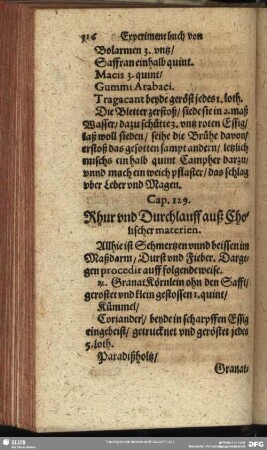 316 Experiment buch von
Bolarmen 3. vntz/
Saffran ein halb quint.
Macis 3. quint/
Gummi Arabaci.
Tragacant beyde geröst jedes 1. loth.
Die Bletter zerstoß/ siede sie in 2. maß
Wasser/ dazu schütte 3. vntz roten Essig/
laß woll sieden/ seihe die Brühe davon/
erstoß das gesotten sampt andern/ letzlich
mischs ein halb quint Campher darzu/
vnnd mach ein weich pflaster/ das schlag
vber Leber vnd Magen.
Cap. 129.
Rhur vnd Durchlauff auß Cho-
lischer materien.
Allhie ist Schmertzen vnnd beissen im
Maßdarm/ Durst vnd Fieber. Darge-
gen procedir auff folgende weise.
℞. Granat Körnlein ohn den Safft/
gerostet vnd klein gestossen 1. quint/
Kümmel/
Coriander/ beyde in scharpffen Essig
eingebeist/ getrucknet vnd geröstet jedes
5. loth.
Paradißholtz/
Granat-
SLUB
DFG